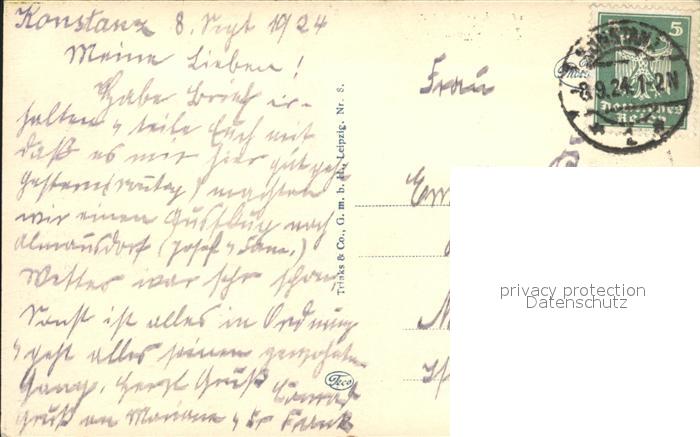 Konstanz 8. Sept 1924
Meine Lieben!
Habe Brief er-
halten & teile Euch mit
daß es mir hier gut geht
Gestern (Sonntag) machten
wir einen Ausflug nach
Almansdorf (Josef & Fam.)
Wetter war sehr schön,
Sonst ist alles in Ordnung
& geht alles seinen gewohnten
Gang. Herzl Gruß
Gruß an Mariane &
Trinks & Co., G. m. b. H., Leipzig. Nr. 8.
Trico
Frau
5
KONSTANZ
8.9.24.1-2N
Deutsches
Reich
privacy protection
Datenschutz